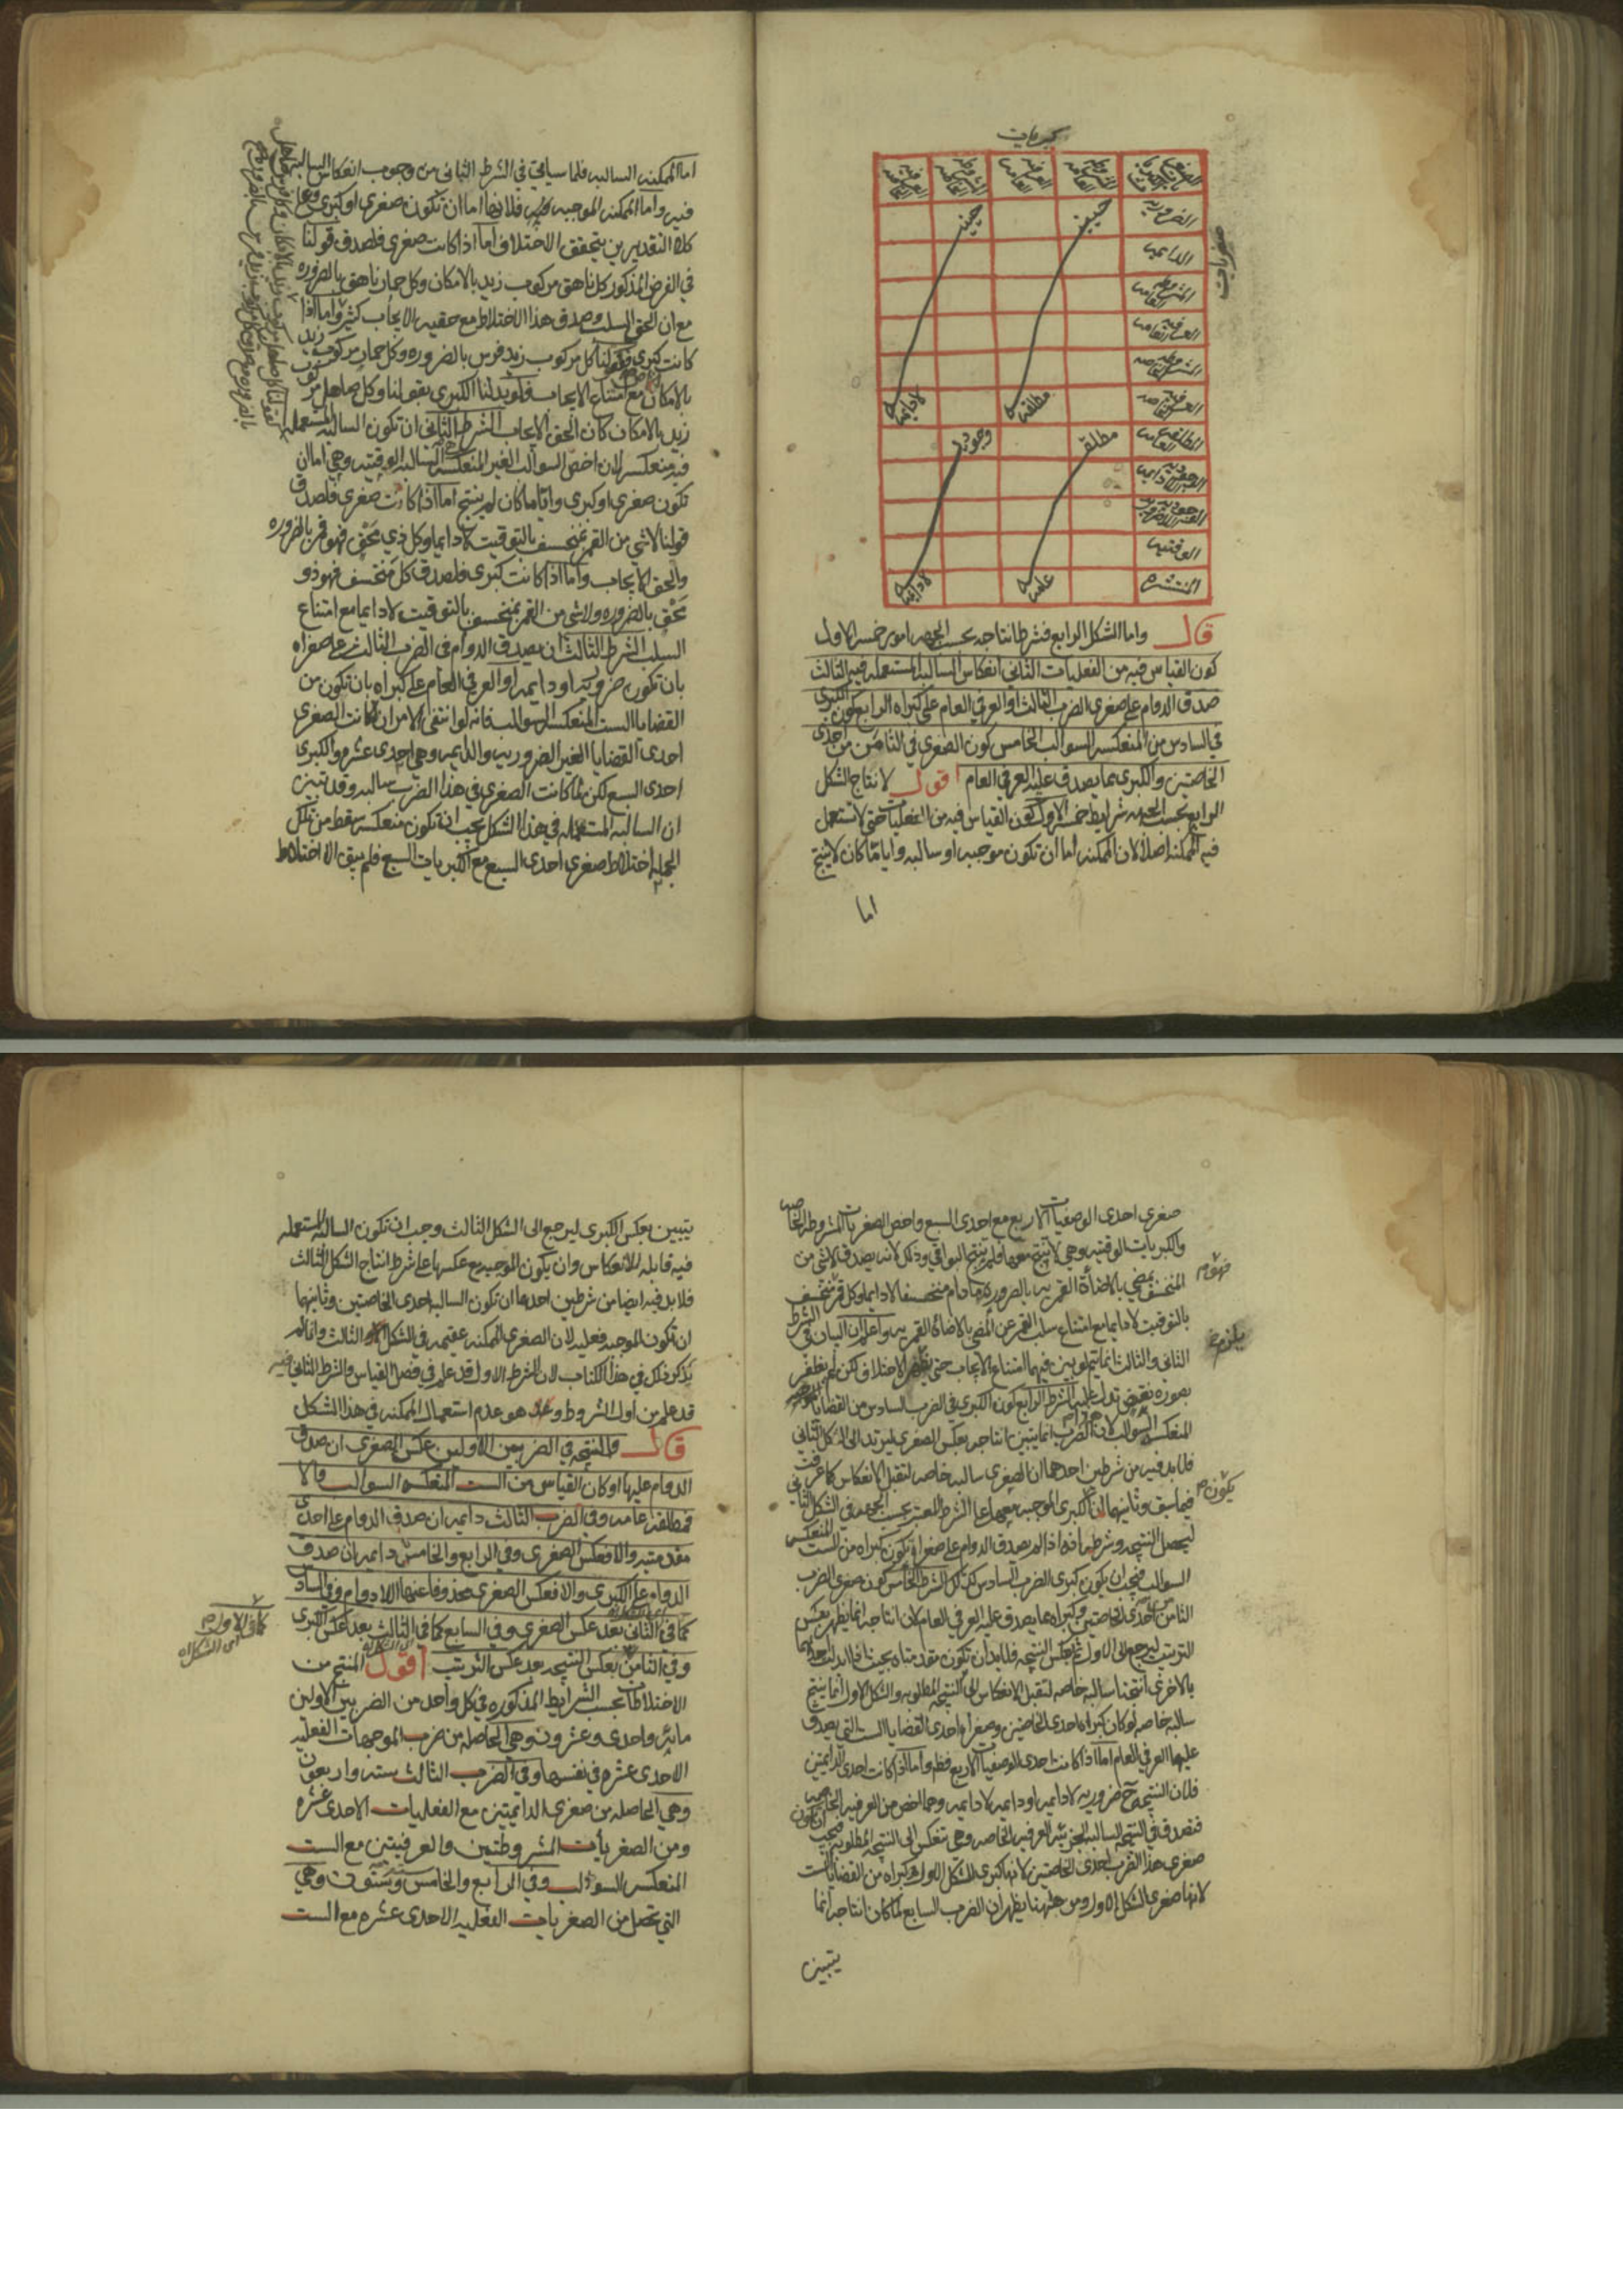 كبريات
صغريات
المشروطة العامة
العرفية العامة
المشروطة الخاصة
العرفية الخاصة
الضرورية
الدايمة
المشروطة العامة
العرفية العامة
المشروطة الخاصة
العرفية الخاصة
المطلقة العامة
الوجودية اللادايمة
الوجودية اللاضرورية
الوقتية
المنتشرة
حينية
مطلقة
حينية
لادايمة
مطلقة
عامة
وجودية
لادايمة
قال واما الشكل الرابع فشرط انتاجه بحسب الجهة امور خمسة الاول
كون القياس فيه من الفعليات الثاني انعكاس السالبة المستعملة فيه الثالث
صدق الدوام على صغرى الضرب الثالث او العرفي العام على كبراه الرابع كون الكبرى
في السادس من المنعكسة السوالب الخامس كون الصغرى في الثامن من احدى
الخاصتين والكبرى مما يصدق عليه العرفي العام اقول لانتاج الشكل
الرابع بحسب الجهة شرايط خمسة الاول كون القياس فيه من الفعليات حتى لا تستعمل
فيه الممكنة اصلا لان الممكنة اما ان تكون موجبة او سالبة وايا ما كان لا ينتج
اما
اما الممكنة السالبة فلما سياتي في الشرط الثاني من وجوب انعكاس السالبة
فيه واما الممكنة الموجبة فلانها اما ان تكون صغرى او كبرى وعلى
كلا التقديرين يتحقق الاختلاف اما اذا كانت صغرى فلصدق قولنا
في الفرض المذكور كل ناهق مركوب زيد بالامكان وكل حمار ناهق بالضرورة
مع ان الحق السلب وصدق هذا الاختلاط مع حقية الايجاب كثير واما اذا
كانت كبرى فكقولنا كل مركوب زيد فرس بالضرورة وكل حمار مركوب زيد
بالامكان مع امتناع الايجاب ولو بدلنا الكبرى بقولنا وكل صاهل مركوب
زيد بالامكان كان الحق الايجاب الشرط الثاني ان تكون السالبة المستعملة
فيه منعكسة لان اخص السوالب الغير المنعكسة السالبة الوقتية وهي اما ان
تكون صغرى او كبرى وايا ما كان لم ينتج اما اذا كانت صغرى فلصدق
قولنا لا شي من القمر بمنخسف بالتوقيت لا دايما وكل ذي محق فهو قمر بالضرورة
والحق الايجاب واما اذا كانت كبرى فلصدق كل منخسف فهو ذو
محق بالضرورة ولا شي من القمر بمنخسف بالتوقيت لا دايما مع امتناع
السلب الشرط الثالث ان يصدق الدوام في الضرب الثالث على صغراه
بان تكون ضرورية او دايمة او العرفي العام على كبراه بان تكون من
القضايا الست المنعكسة السوالب فانه لو انتفى الامران كانت الصغرى
احدى القضايا الغير الضرورية والدايمة وهي احدى عشر والكبرى
احدى السبع لكن لما كانت الصغرى في هذا الضرب سالبة وقد تبين
ان السالبة المستعملة في هذا الشكل يجب ان تكون منعكسة سقط من تلك
الجملة اختلاط صغرى احدى السبع مع الكبريات السبع فلم يبق الا اختلاط
صغرى احدى الوصفيات الاربع مع احدى السبع واخص الصغريات المشروطة الخاصة
والكبريات الوقتية وهي لا تنتج معها فلم ينتج البواقي وذلك لانه يصدق لا شي من
المنخسف بمضي بالاضاءة القمرية بالضرورة ما دام منخسفا لا دايما وكل قمر منخسف
فهو قمر
بالتوقيت لا دايما مع امتناع سلب القمر عن المضي بالاضاءة القمرية واعلم ان البيان في الشرط
الثاني والثالث انما يتم لو بين فيهما امتناع الايجاب حتى يلزم الاختلاف لكن لم يظفر
بصورة نقيض تدل عليه الشرط الرابع كون الكبرى في الضرب السادس من القضايا
المنعكسة السوالب لان هذا الضرب انما يتبين انتاجه بعكس الصغرى ليرتد الى الشكل الثاني
فلا بد فيه من شرطين احدهما ان الصغرى سالبة خاصة لتقبل الانعكاس كما عرفت
فيما سبق وثانيهما ان الكبرى الموجبة معها على الشرط المعتبر بحسب الجهة في الشكل الثاني
يكون
ليحصل النتيجة وشرطه انه اذا لم يصدق الدوام على صغراه يكون كبراه من الست المنعكسة
السوالب فيجب ان يكون كبرى الضرب السادس كذلك الشرط الخامس كون صغرى الضرب
الثامن احدى الخاصتين وكبراه مما يصدق عليه العرفي العام لان انتاجه انما يظهر بعكس
الترتيب ليرجع الى الاول ثم عكس النتيجة فلا بد ان تكون مقدمتاه بحيث اذا بدلت احداهما
بالاخرى انتجتا سالبة خاصة لتقبل الانعكاس الى النتيجة المطلوبة والشكل الاول انما ينتج
سالبة خاصة لو كان كبراه احدى الخاصتين وصغراه احدى القضايا الست التي يصدق
عليها العرفي العام اما اذا كانت احدى الوصفيات الاربع فظ واما اذا كانت احدى الدايمتين
فلان النتيجة ح ضرورية لا دايمة او دايمة لا دايمة وهما اخص من العرفية الخاصة
فتصدق في النتيجة السالبة الجزئية العرفية الخاصة وهي تنعكس الى النتيجة المطلوبة فيجب ان تكون
صغرى هذا الضرب احدى الخاصتين لانها كبرى الشكل الاول وكبراه من القضايا الست
لانها صغرى الشكل الاول ومن ههنا يظهر ان الضرب السابع لما كان انتاجه انما
يتبين
يتبين بعكس الكبرى ليرجع الى الشكل الثالث وجب ان تكون السالبة المستعملة
فيه قابلة للانعكاس وان يكون الموجبة مع عكسها على شرط انتاج الشكل الثالث
فلا بد فيه ايضا من شرطين احدهما ان تكون السالبة احدى الخاصتين وثانيها
ان تكون الموجبة فعلية لان الصغرى الممكنة عقيمة في الشكل الثالث وانما لم
يذكر ذلك في هذا الكتاب لان الشرط الاول قد علم في فصل القياس والشرط الثاني
قد علم من اول الشروط هو عدم استعمال الممكنة في هذا الشكل
قال والنتيجة في الضربين الاولين عكس الصغرى ان صدق
الدوام عليها او كان القياس من الست المنعكسة السوالب والا
فمطلقة عامة وفي الضرب الثالث دايمة ان صدق الدوام على احدى
مقدمتيه والا فعكس الصغرى وفي الرابع والخامس دايمة ان صدق
الدوام على الكبرى والا فعكس الصغرى محذوفا عنها اللادوام وفي السادس
كما في الثاني بعد عكس الصغرى وفي السابع كما في الثالث بعد عكس الكبرى
وفي الثامن بعكس النتيجة بعد عكس الترتيب اقول المنتج من
الاختلاطات بحسب الشرايط المذكورة في كل واحد من الضربين الاولين
ماية واحدى وعشرون وهي الحاصلة من ضرب الموجهات الفعلية
الاحدى عشرة في نفسها وفي الضرب الثالث ستة واربعون
وهي الحاصلة من صغرى الدايمتين مع الفعليات الاحدى عشرة
ومن الصغريات المشروطتين والعرفيتين مع الست
المنعكسة السوالب وفي الرابع والخامس وستون وهي
التي تحصل من الصغريات الفعلية الاحدى عشرة مع الست